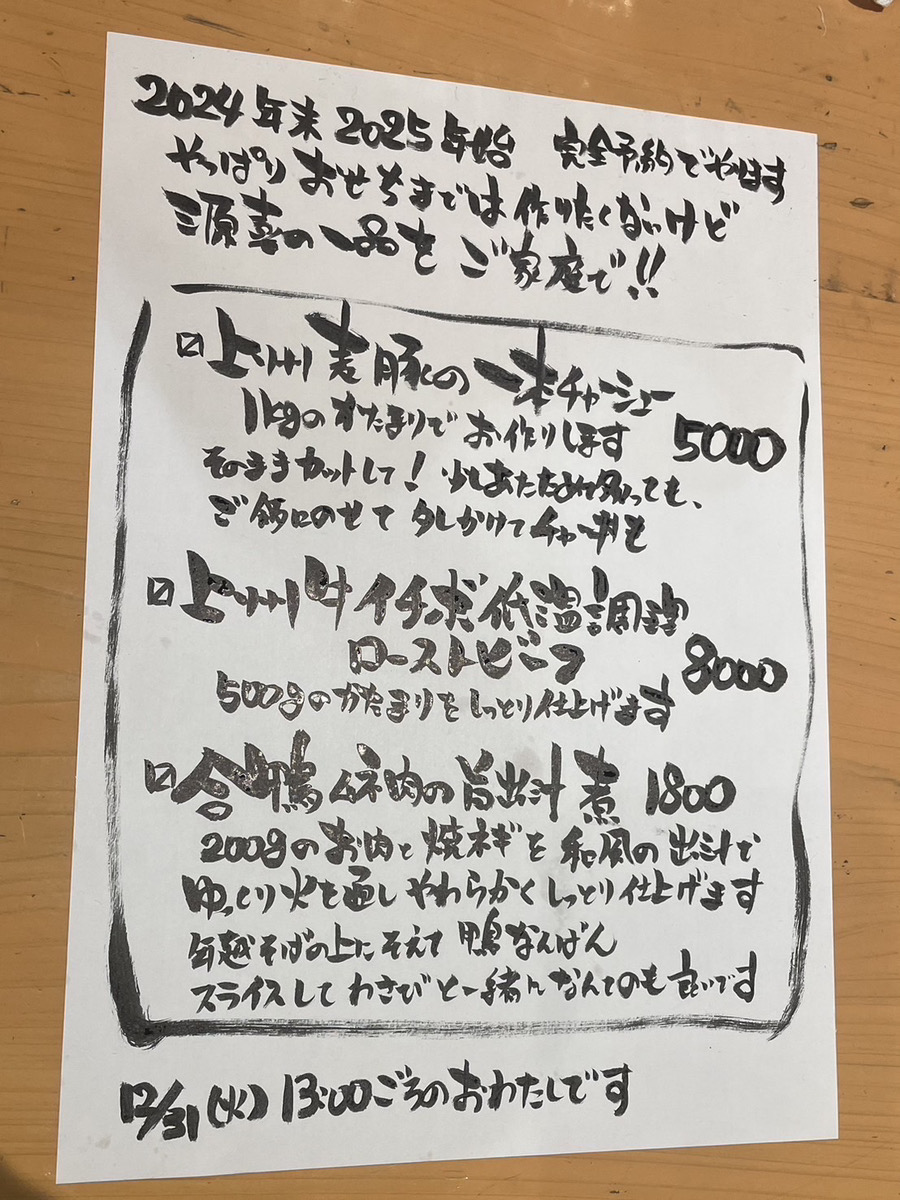 2024年末 2025年始 完全予約でやります
やっぱり おせちまでは 作りたくないけど
源喜の 一品を ご家庭で!!
上州麦豚の 一本チャーシュー
1kgの かたまりで お作りします 5000
そのままカットして! 少しあたためて切っても、
ご飯にのせて タレかけて チャー丼も
上州牛イチボ 低温調理
ローストビーフ 8000
500gのかたまりを しっとり仕上げます
合鴨ムネ肉の旨出汁煮 1800
200gのお肉と焼ネギを和風の出汁で
ゆっくり火を通し やわらかくしっとり仕上げます
年越そばの上にそえて 鴨なんばん
スライスして わさびと一緒に なんてのも良いです
12/31(火) 13:00ごろのおわたしです